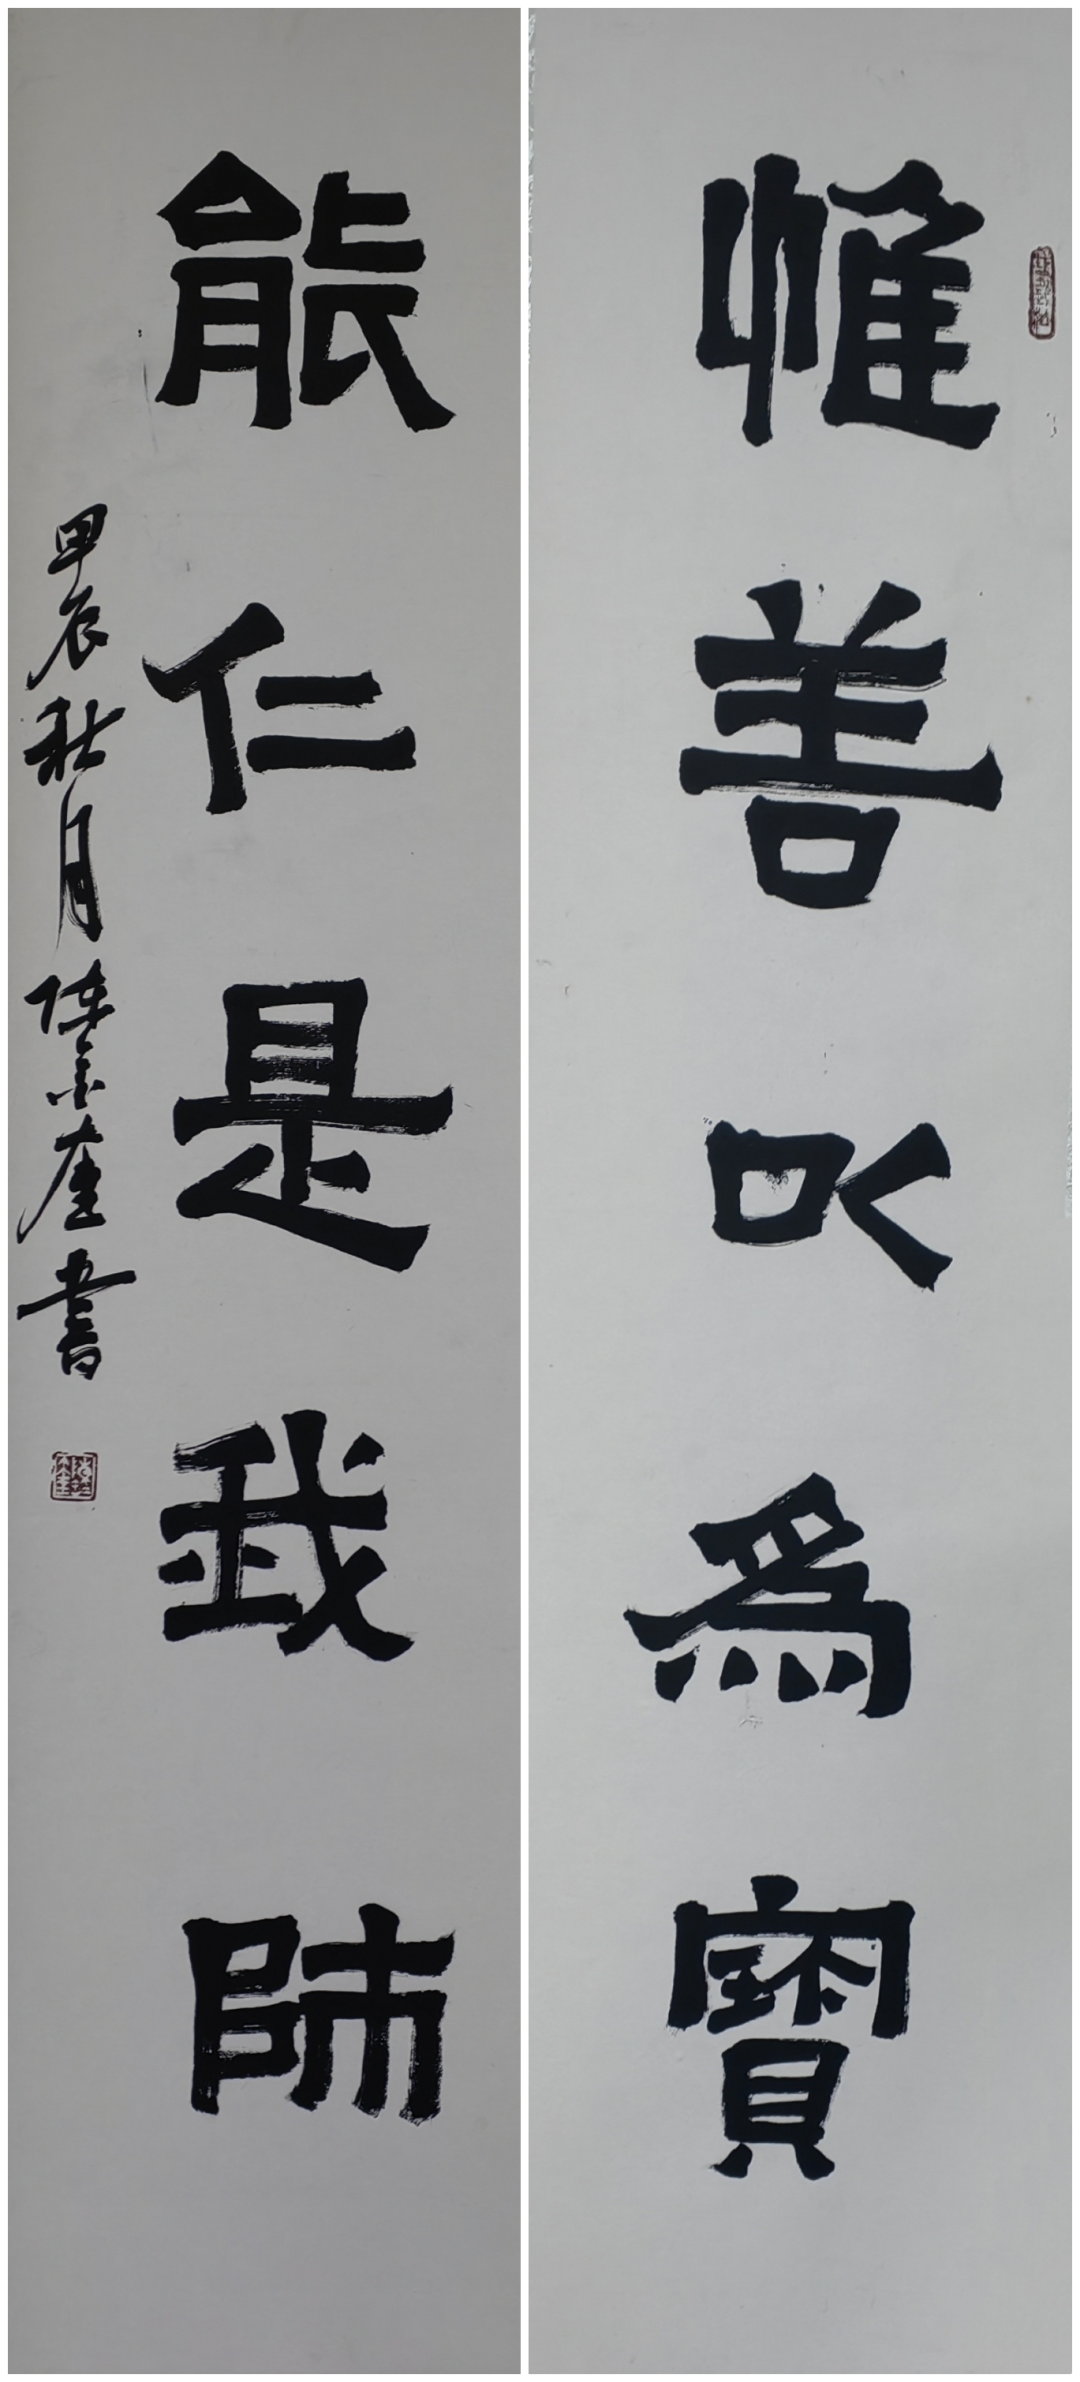 惟善以為寶
能仁是我師
甲辰秋月陳宗崖書